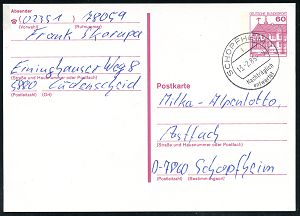 Absender
(02351) 78059
(Vorwahl) (Rufnummer)
Frank Skorupa
Eininghauser Weg 8
(Straße und Hausnummer oder Postfach)
5880 Lüdenscheid
(Postleitzahl) (Ort)
DEUTSCHE BUNDESPOST
60
SCHOPFHEIM
Nachträglich
entwertet
Postkarte
Milka-Alpenlotto,
Postfach
(Straße und Hausnummer oder Postfach)
D-7860 Schopfheim
(Postleitzahl) (Bestimmungsort)